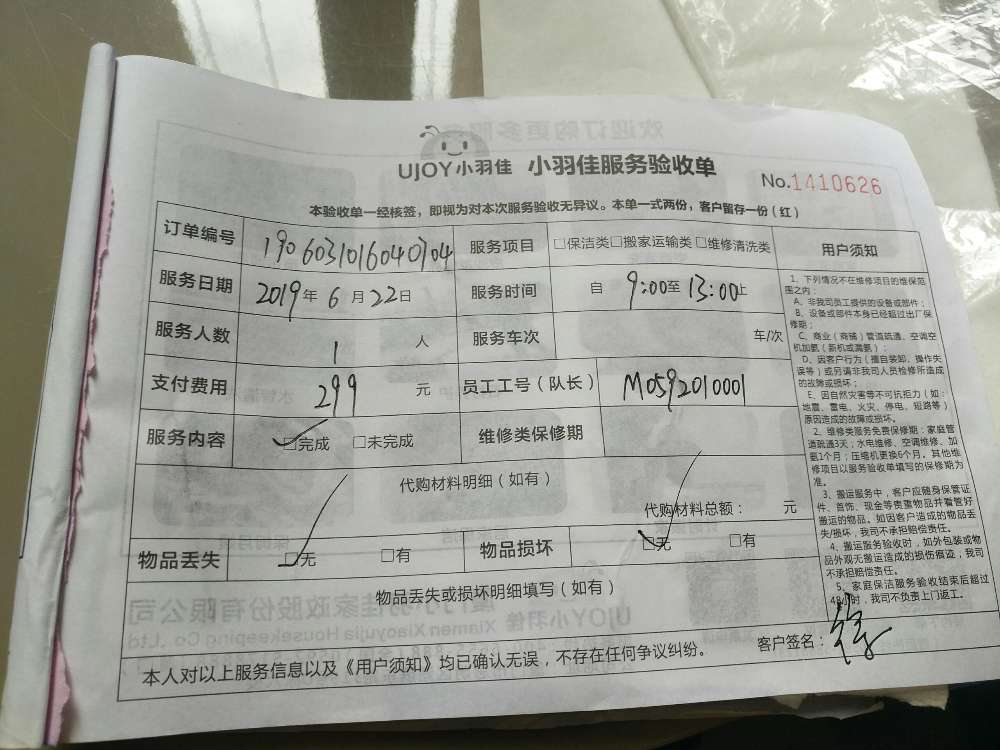 UJOY小羽佳 小羽佳服务验收单
No.1410626
本验收单一经核签，即视为对本次服务验收无异议。本单一式两份，客户留存一份（红）
订单编号 1906031016040704 服务项目 □保洁类□搬家运输类□维修清洗类 用户须知
服务日期 2019年6月22日 服务时间 自9:00至13:00止
服务人数 1人 服务车次 车/次
支付费用 299元 员工工号（队长） M0592010001
服务内容 □完成 □未完成 维修类保修期
代购材料明细（如有）
代购材料总额： 元
物品丢失 □无 □有 物品损坏 □无 □有
物品丢失或损坏明细填写（如有）
本人对以上服务信息以及《用户须知》均已确认无误，不存在任何争议纠纷。
客户签名：
1、下列情况不在维修项目的维保范
围之内：
A、非我司员工提供的设备或部件；
B、设备或部件本身已经超过出厂保
修期；
C、商业（商铺）管道疏通、空调空
机加氨（新机或漏氨）；
D、因客户行为（擅自装卸、操作失
误等）或另请非我司人员检修所造成
的故障或损坏；
E、因自然灾害等不可抗拒力（如：
地震、雷电、火灾、停电、短路等）
原因造成的故障或损坏。
2、维修类服务免费保修期：家庭管
道疏通3天；水电维修、空调维修、加
氨1个月；压缩机更换6个月。其他维
修项目以服务验收单填写的保修期为
准。
3、搬运服务中，客户应随身保管证
件、首饰、现金等贵重物品并看管好
搬运的物品。如因客户造成的物品丢
失/损坏，我司不承担赔偿责任。
4、搬运服务验收时，如外包装或物
品外观无搬运造成的损伤痕迹，我司
不承担赔偿责任。
5、家庭保洁服务验收结束后超过
48小时，我司不负责上门返工。